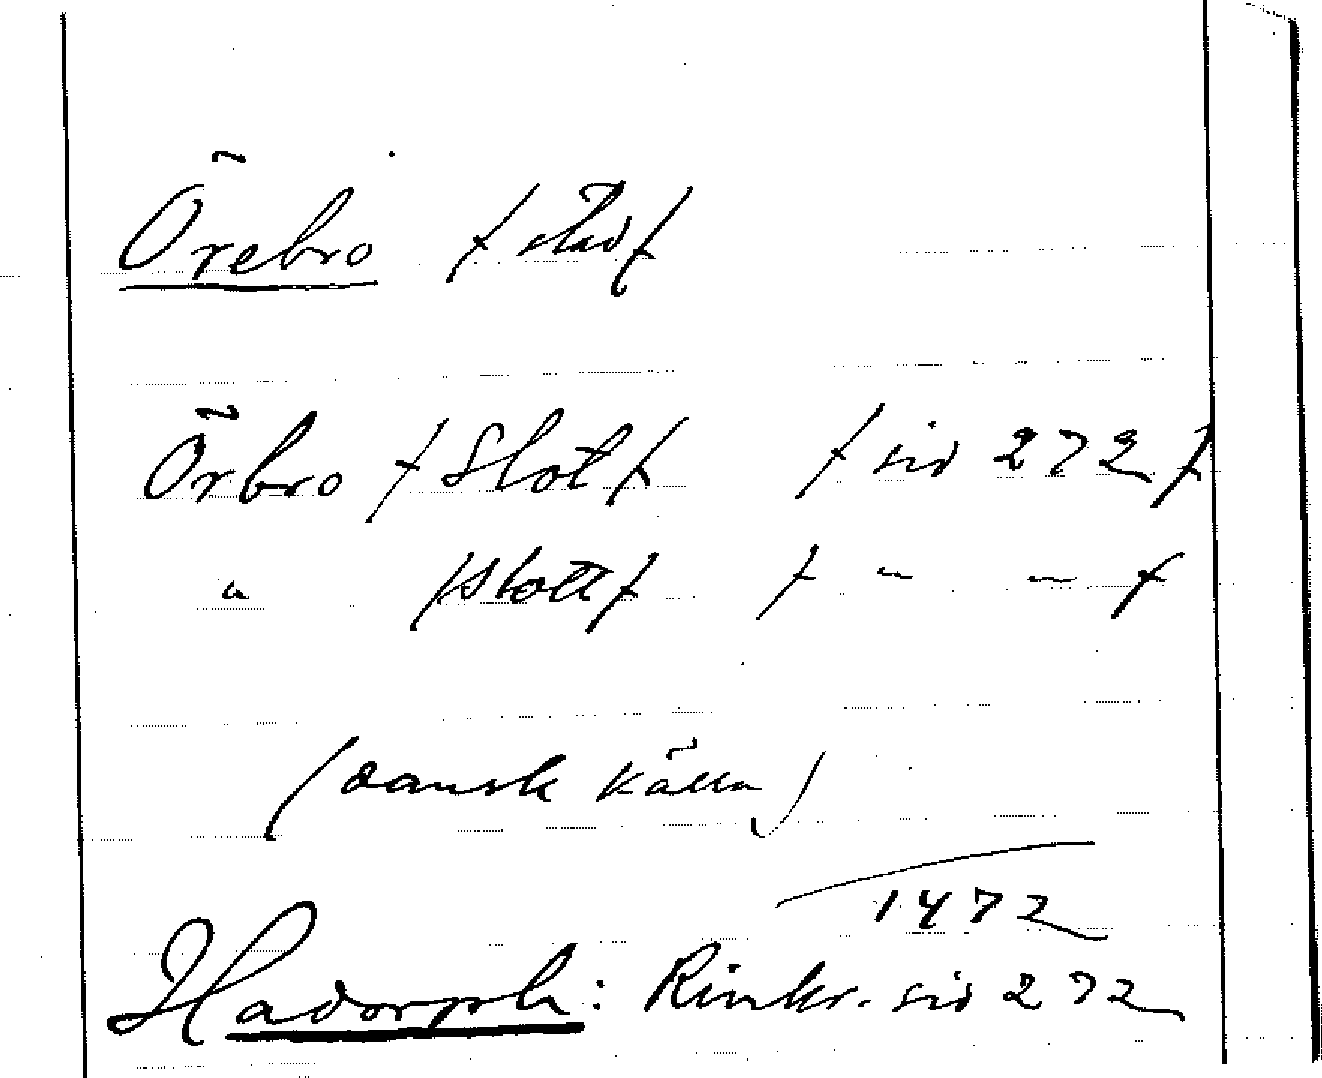 Örebro /stad/
Örbro /Slot/ /sid 272/
" /slott/ / " — /
(dansk källa)
1472
Hadorph: Rimkr. sid 272